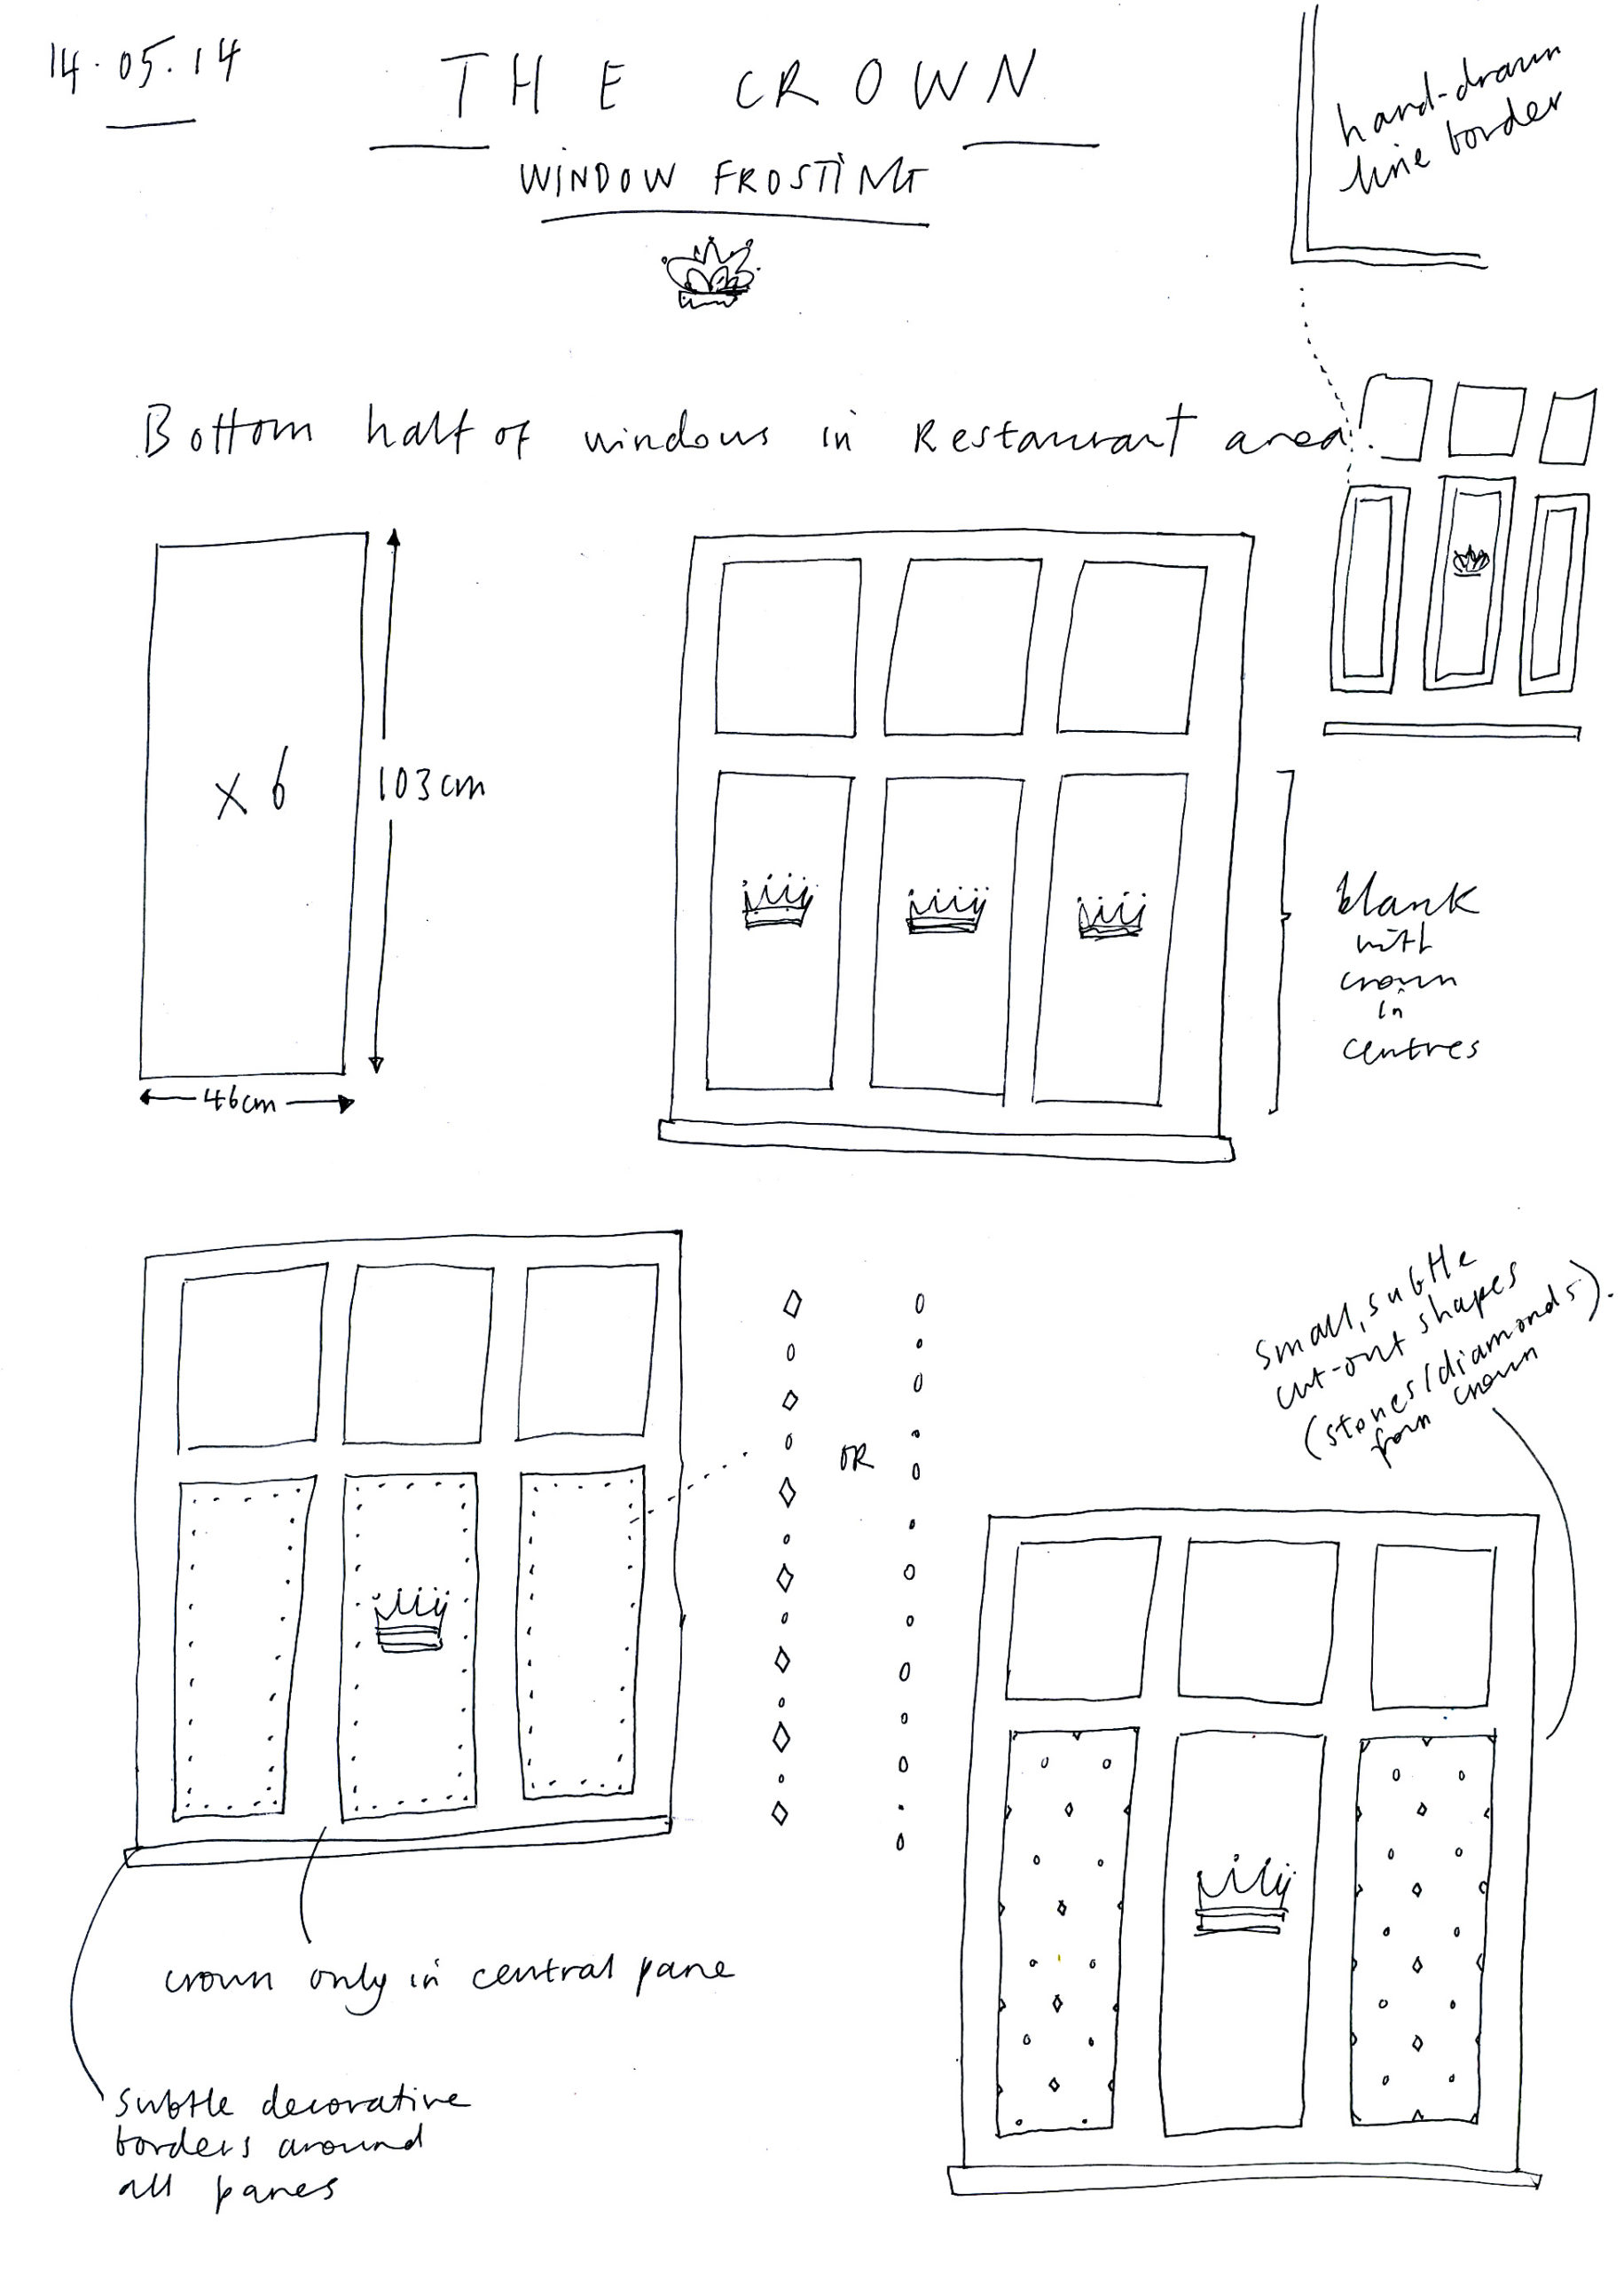 14.05.14
THE CROWN
WINDOW FROSTING
hand-drawn
line border
Bottom half of windows in Restaurant area.
x 6
103cm
46cm
blank
with
crown
in
centres
OR
small, subtle
cut-out shapes
(stones/diamonds).
from crown
crown only in central pane
subtle decorative
borders around
all panes